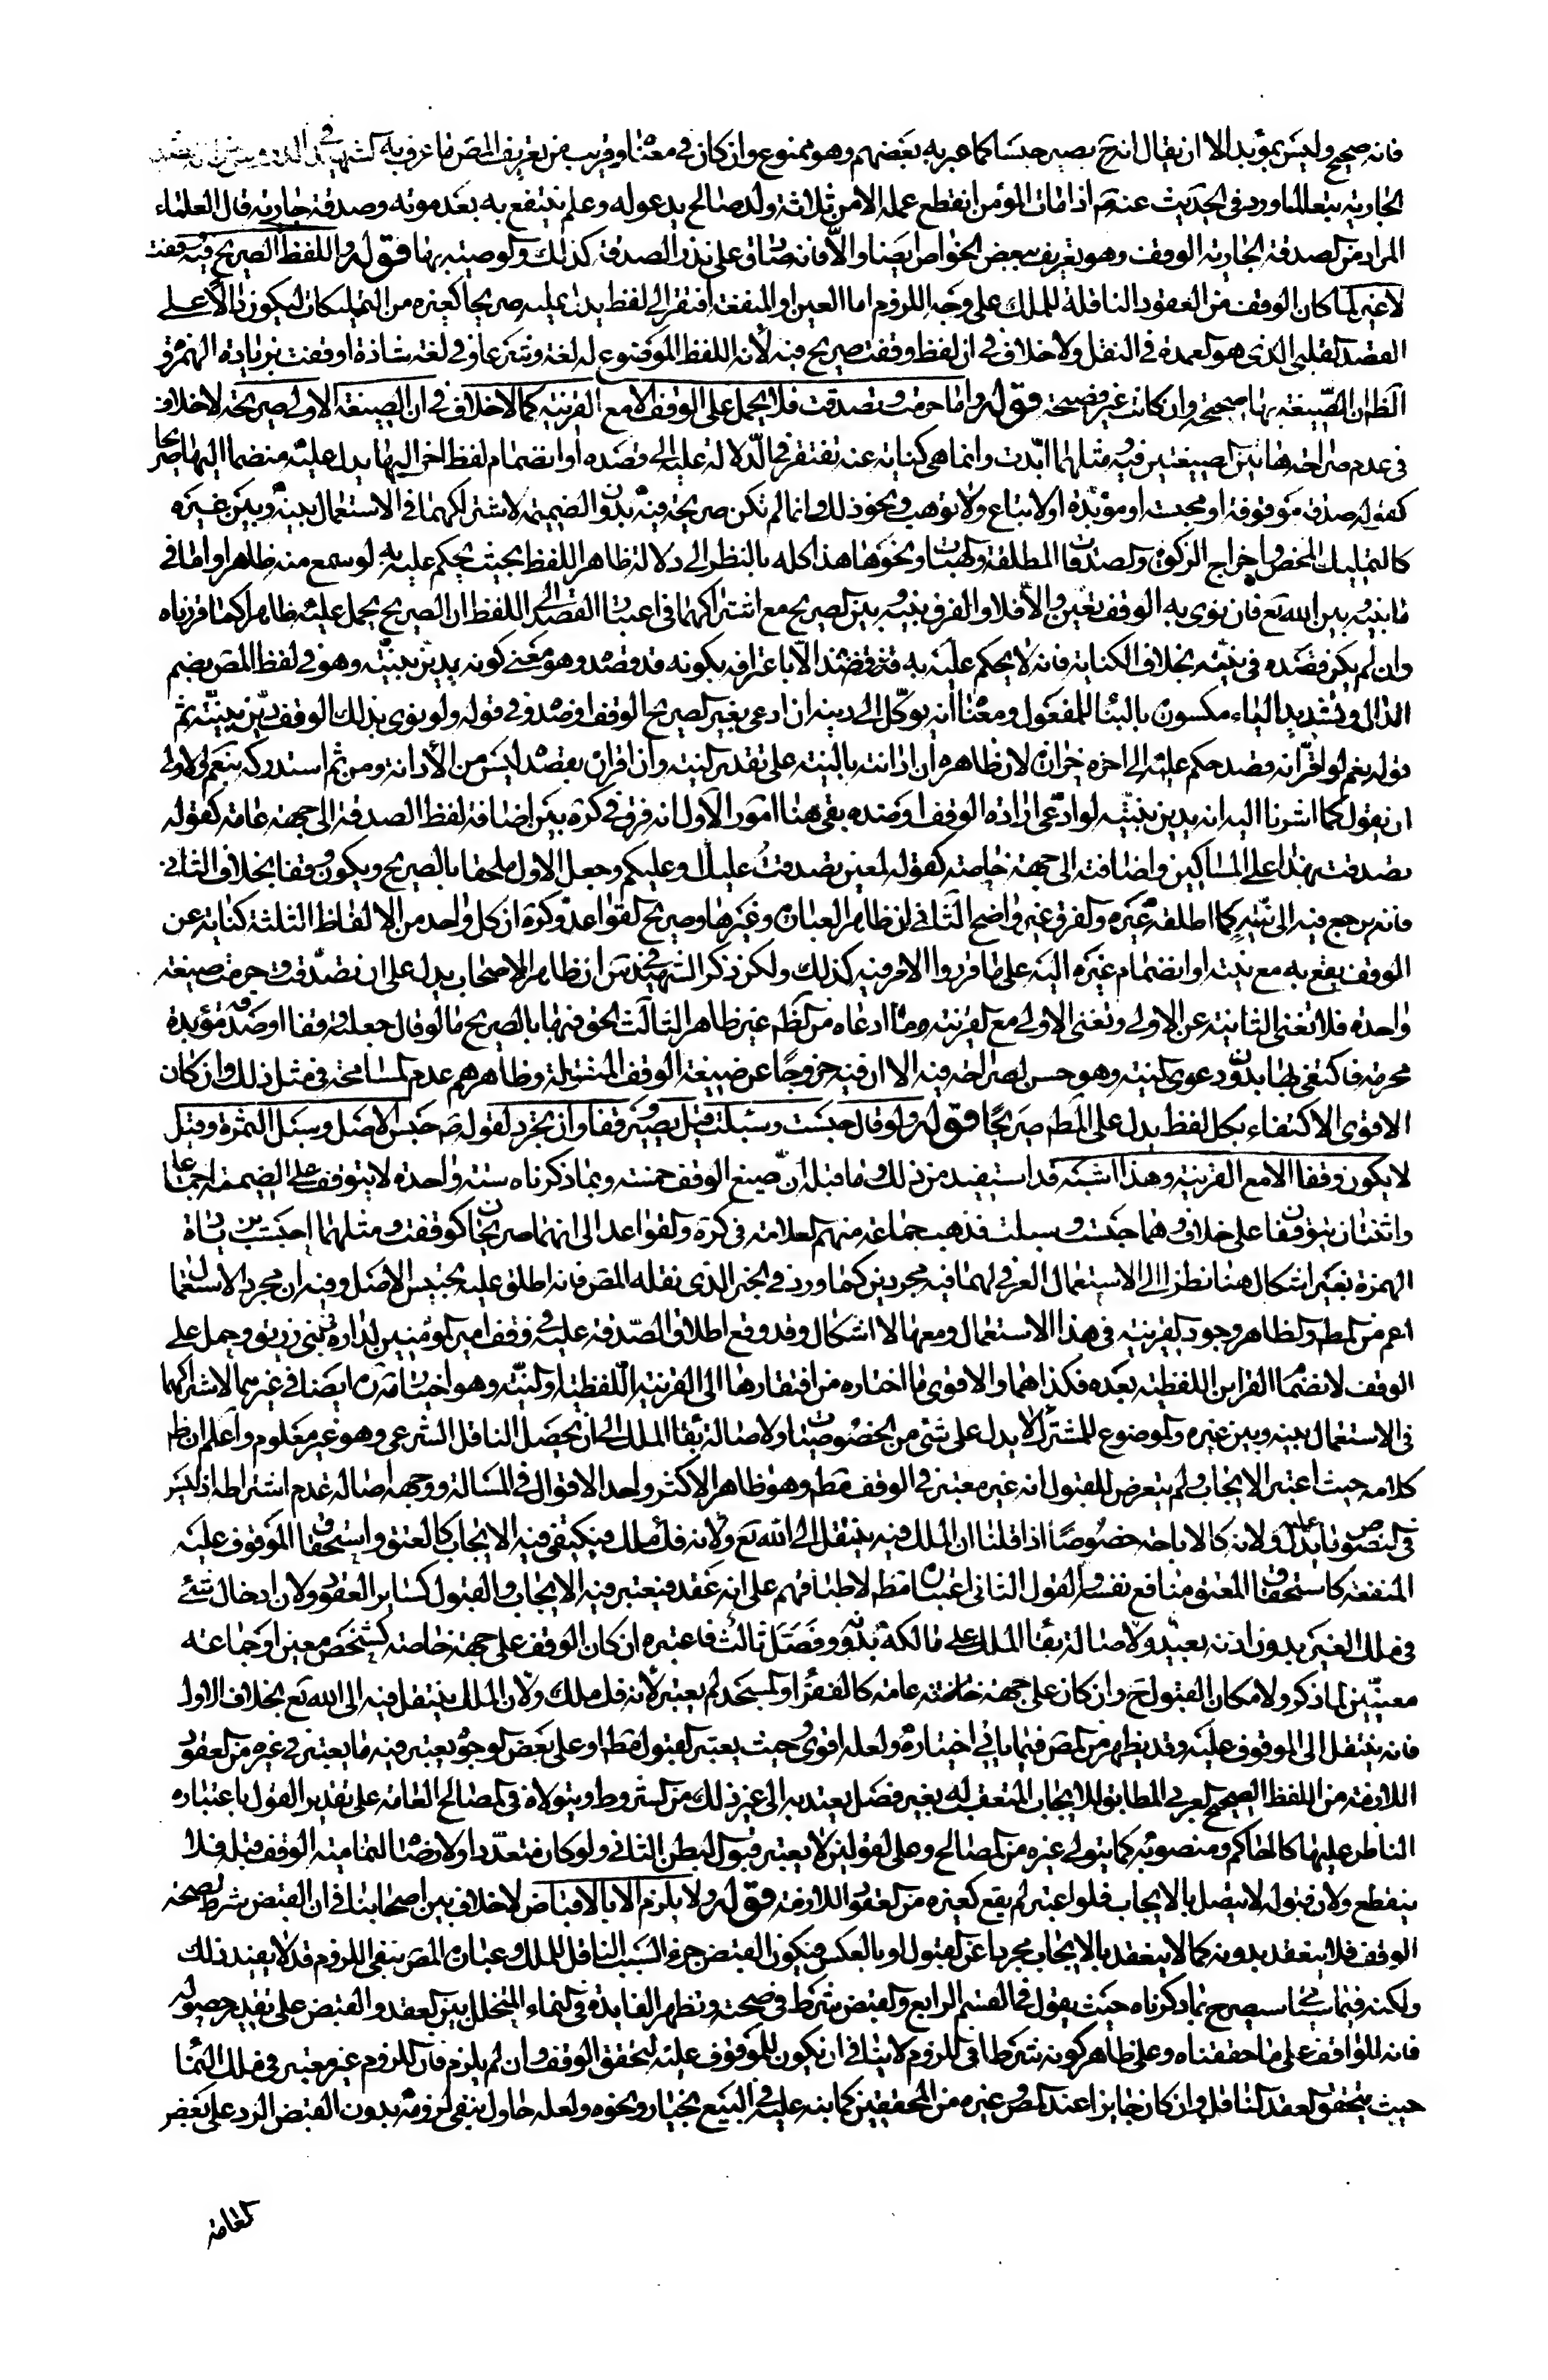 فانه صحيح وليس بمؤبد الا ان يقال انه ح يصير حبسا كما عبر به بعضهم وهو ممنوع وان كان في معناه وقريب من تعريف المص ما عرف به الشهيد في الدروس
الجارية تبعا لما ورد في الحديث عنه ص اذا مات المؤمن انقطع عمله الا من ثلاثة ولد صالح يدعو له وعلم ينتفع به بعد موته وصدقة جارية قال العلماء
المراد من الصدقة الجارية الوقف وهو تعريف ببعض الخواص ايضا والا فانه صادق على نذر الصدقة كذلك والوصية بها قوله واللفظ الصريح فيه وقفت
لا غير لما كان الوقف من العقود الناقلة للملك على وجه اللزوم اما العين او المنفعة افتقر الى لفظ يدل عليه صريحا كغيره من التمليكات ليكون دالا على
القصد القلبي الذي هو العمدة في النقل ولا خلاف في ان لفظ وقفت صريح فيه لانه اللفظ الموضوع له لغة وشرعا وفي لغة شاذة اوقفت بزيادة الهمزة و
الظ ان الصيغة بها صحيحة وان كانت غير فصيحة قوله واما حرمت وتصدقت فلا يحمل على الوقف الا مع القرينة كما لا خلاف في ان الصيغة الاولى صريحة لا خلاف
في عدم صراحة هاتين الصيغتين فيه ومثلهما ابدت وانما هي كناية عنه تفتقر في الدلالة عليه الى قصده او انضمام لفظ اخر اليها يدل عليه منضما اليها صريحا
كقوله صدقة موقوفة او محبسة او مؤبدة او لا تباع ولا توهب ونحو ذلك وانما لم تكن صريحة فيه بدون الضميمة لاشتراكهما في الاستعمال بينه وبين غيره
كالتمليك المحض واخراج الزكوة والصدقات المطلقة والهبات ونحوها هذا كله بالنظر الى دلالة ظاهر اللفظ بحيث يحكم عليه به لو سمع منه ظاهرا واما في
ما بينه وبين الله تع فان نوى به الوقف تعين والا فلا والفرق بينه وبين الصريح مع اشتراكهما في اعتبار القصد الى اللفظ ان الصريح يحمل عليه ظاهرا كما قررناه
وان لم يكن قصده في نيته بخلاف الكناية فانه لا يحكم عليه به الا باعترافه بكونه قد قصده وهو معنى كونه يدين بنيته وهو في لفظ المص بضم
الدال وتشديد الياء مكسورة بالبناء للمفعول ومعناه انه يوكل الى دينه ان ادعى بغير الصريح الوقف او ضده وفي قوله ولو نوى بذلك الوقف دين بنيته ثم
قوله نعم لو اقر انه قصد حكم عليه الى اخره خزازة لان ظاهره ان ادانته بالنية على تقدير النية وان اقراره بقصده ليس من الادانة ومن ثم استدركه بنعم والاولى
ان يقول كما اشرنا اليه انه يدين بنيته لو ادعى ارادة الوقف او ضده بقي هنا امور الاول انه فرق في كرة بين اضافة لفظ الصدقة الى جهة عامة كقوله
تصدقت بهذا على المساكين واضافته الى جهة خاصة كقوله لمعين تصدقت عليك او عليكم وجعل الاول ملحقا بالصريح ويكون وقفا بخلاف الثاني
فانه يرجع فيه الى نيته كما اطلقه غيره والفرق غير واضح الثاني ان ظاهر العبارة وغيرها وصريح لقواعد وكرة ان كل واحد من الالفاظ الثلثة كناية عن
الوقف يقع به مع نيته او انضمام غيره اليه على ما قرروا الامر فيه كذلك ولكن ذكر الشهيد في س ان ظاهر الاصحاب يدل على ان تصدقت وحرمت صيغة
واحدة فلا تغني الثانية عن الاولى وتغني الاولى مع القرينة وما ادعاه من الظ غير ظاهر الثالث الحق فيها بالصريح ما لو قال جعلته وقفا او صدقة مؤبدة
محرمة فاكتفى بها بدون دعوى النية وهو حسن لصراحته فيه الا ان فيه خروجا عن صيغة الوقف المنقولة وظاهرهم عدم المسامحة في مثل ذلك وان كان
الاقوى الاكتفاء بكل لفظ يدل على المط صريحا قوله ولو قال حبست وسبلت قيل يصير وقفا وان تجرد لقوله ص حبس الاصل وسبل الثمرة وقيل
لا يكون وقفا الا مع القرينة وهذا اشبه قد استفيد من ذلك وما قبله ان صيغ الوقف خمسة وبما ذكرناه ستة واحدة لا يتوقف على الضميمة اجماعا
واثنتان يتوقفان على خلاف وهما حبست وسبلت فذهب جماعة منهم العلامة في كرة والقواعد الى انهما صريحان كوقفت ومثلهما احبست بزيادة
الهمزة بغير اشكال هنا نظرا الى الاستعمال العرفي لهما فيه مجردين كما ورد في الخبر الذي نقله المص فانه اطلق عليه تحبيس الاصل وفيه ان مجرد الاستعمال
اعم من المط والظاهر وجود القرينة في هذا الاستعمال ومعها لا اشكال وقد وقع اطلاق الصدقة عليه في وقف امير المؤمنين لداره في بني زريق وحمل على
الوقف لانضمام القراين اللفظية بعده فكذا هما والاقوى ما اختاره من افتقارها الى القرينة اللفظية او النية وهو اختياره ايضا في غيرهما لاشتراكهما
في الاستعمال بينه وبين غيره والموضوع للمشترك لا يدل على شئ من الخصوصيات ولاصالة بقاء الملك الى ان يحصل الناقل الشرعي وهو غير معلوم واعلم ان ظ
كلامه حيث اعتبر الايجاب ولم يتعرض للقبول انه غير معتبر في الوقف مط وهو ظاهر الاكثر واحد الاقوال في المسالة ووجهه اصالة عدم اشتراطه اذ ليس
في النصوص ما يدل عليه ولانه كالاباحة خصوصا اذا قلنا ان الملك فيه ينتقل الى الله تع ولانه فك ملك فيكتفى فيه الايجاب كالعتق واستحقاق الموقوف عليه
المنفعة كاستحقاق المعتق منافع نفسه والقول الثاني اعتباره مط لاطباقهم على انه عقد فيعتبر فيه الايجاب والقبول كساير العقود ولان ادخال شئ
في ملك الغير بدون اذنه بعيد ولاصالة بقاء الملك على مالكه بدونه وفصل ثالث فاعتبره ان كان الوقف على جهة خاصة كشخص معين او جماعة
معينين لما ذكر ولامكان القبول ح وان كان على جهة عامة كالفقراء والمسجد لم يعتبر لانه فك ملك ولان الملك ينتقل فيه الى الله تع بخلاف الاول
فانه ينتقل الى الموقوف عليه وقد يظهر من المص فيما ياتي اختياره ولعله اقوى وحيث يعتبر القبول مط او على بعض الوجوه يعتبر فيه ما يعتبر في غيره من العقود
اللازمة من اللفظ الصحيح العربي المطابق للايجاب المتعقب له بغير فصل يعتد به الى غير ذلك من الشروط ويتولاه في المصالح العامة على تقدير القول باعتباره
الناظر عليها كالحاكم ومنصوبه كما يتولى غيره من المصالح وعلى القولين لا يعتبر قبول البطن الثاني ولو كان متعددا ولا رضاه لتمامية الوقف قبله فلا
ينقطع ولان قبوله لا يتصل بالايجاب فلو اعتبر لم يقع كغيره من العقود اللازمة قوله ولا يلزم الا بالاقباض لا خلاف بين اصحابنا في ان القبض شرط لصحة
الوقف فلا ينعقد بدونه كما لا ينعقد بالايجاب مجردا عن القبول او بالعكس فيكون القبض جزء السبب الناقل للملك وعبارة المص بنفي اللزوم قد لا يفيد ذلك
ولكنه فيما سيصرح بما ذكرناه حيث يقول في القسم الرابع والقبض شرط في صحته وتظهر الفايدة في النماء المتخلل بين العقد والقبض على تقدير حصوله
فانه للواقف على ما حققناه وعلى ظاهر كونه شرطا في اللزوم لا ينافي ان يكون للموقوف عليه لتحقق الوقف وان لم يلزم فان اللزوم غير معتبر في ملك النماء
حيث يتحقق العقد الناقل وان كان جايزا عند المص وغيره من المحققين كما نبه عليه في البيع بخيار ونحوه ولعله حاول بنفي لزومه بدون القبض الرد على بعض
العامة